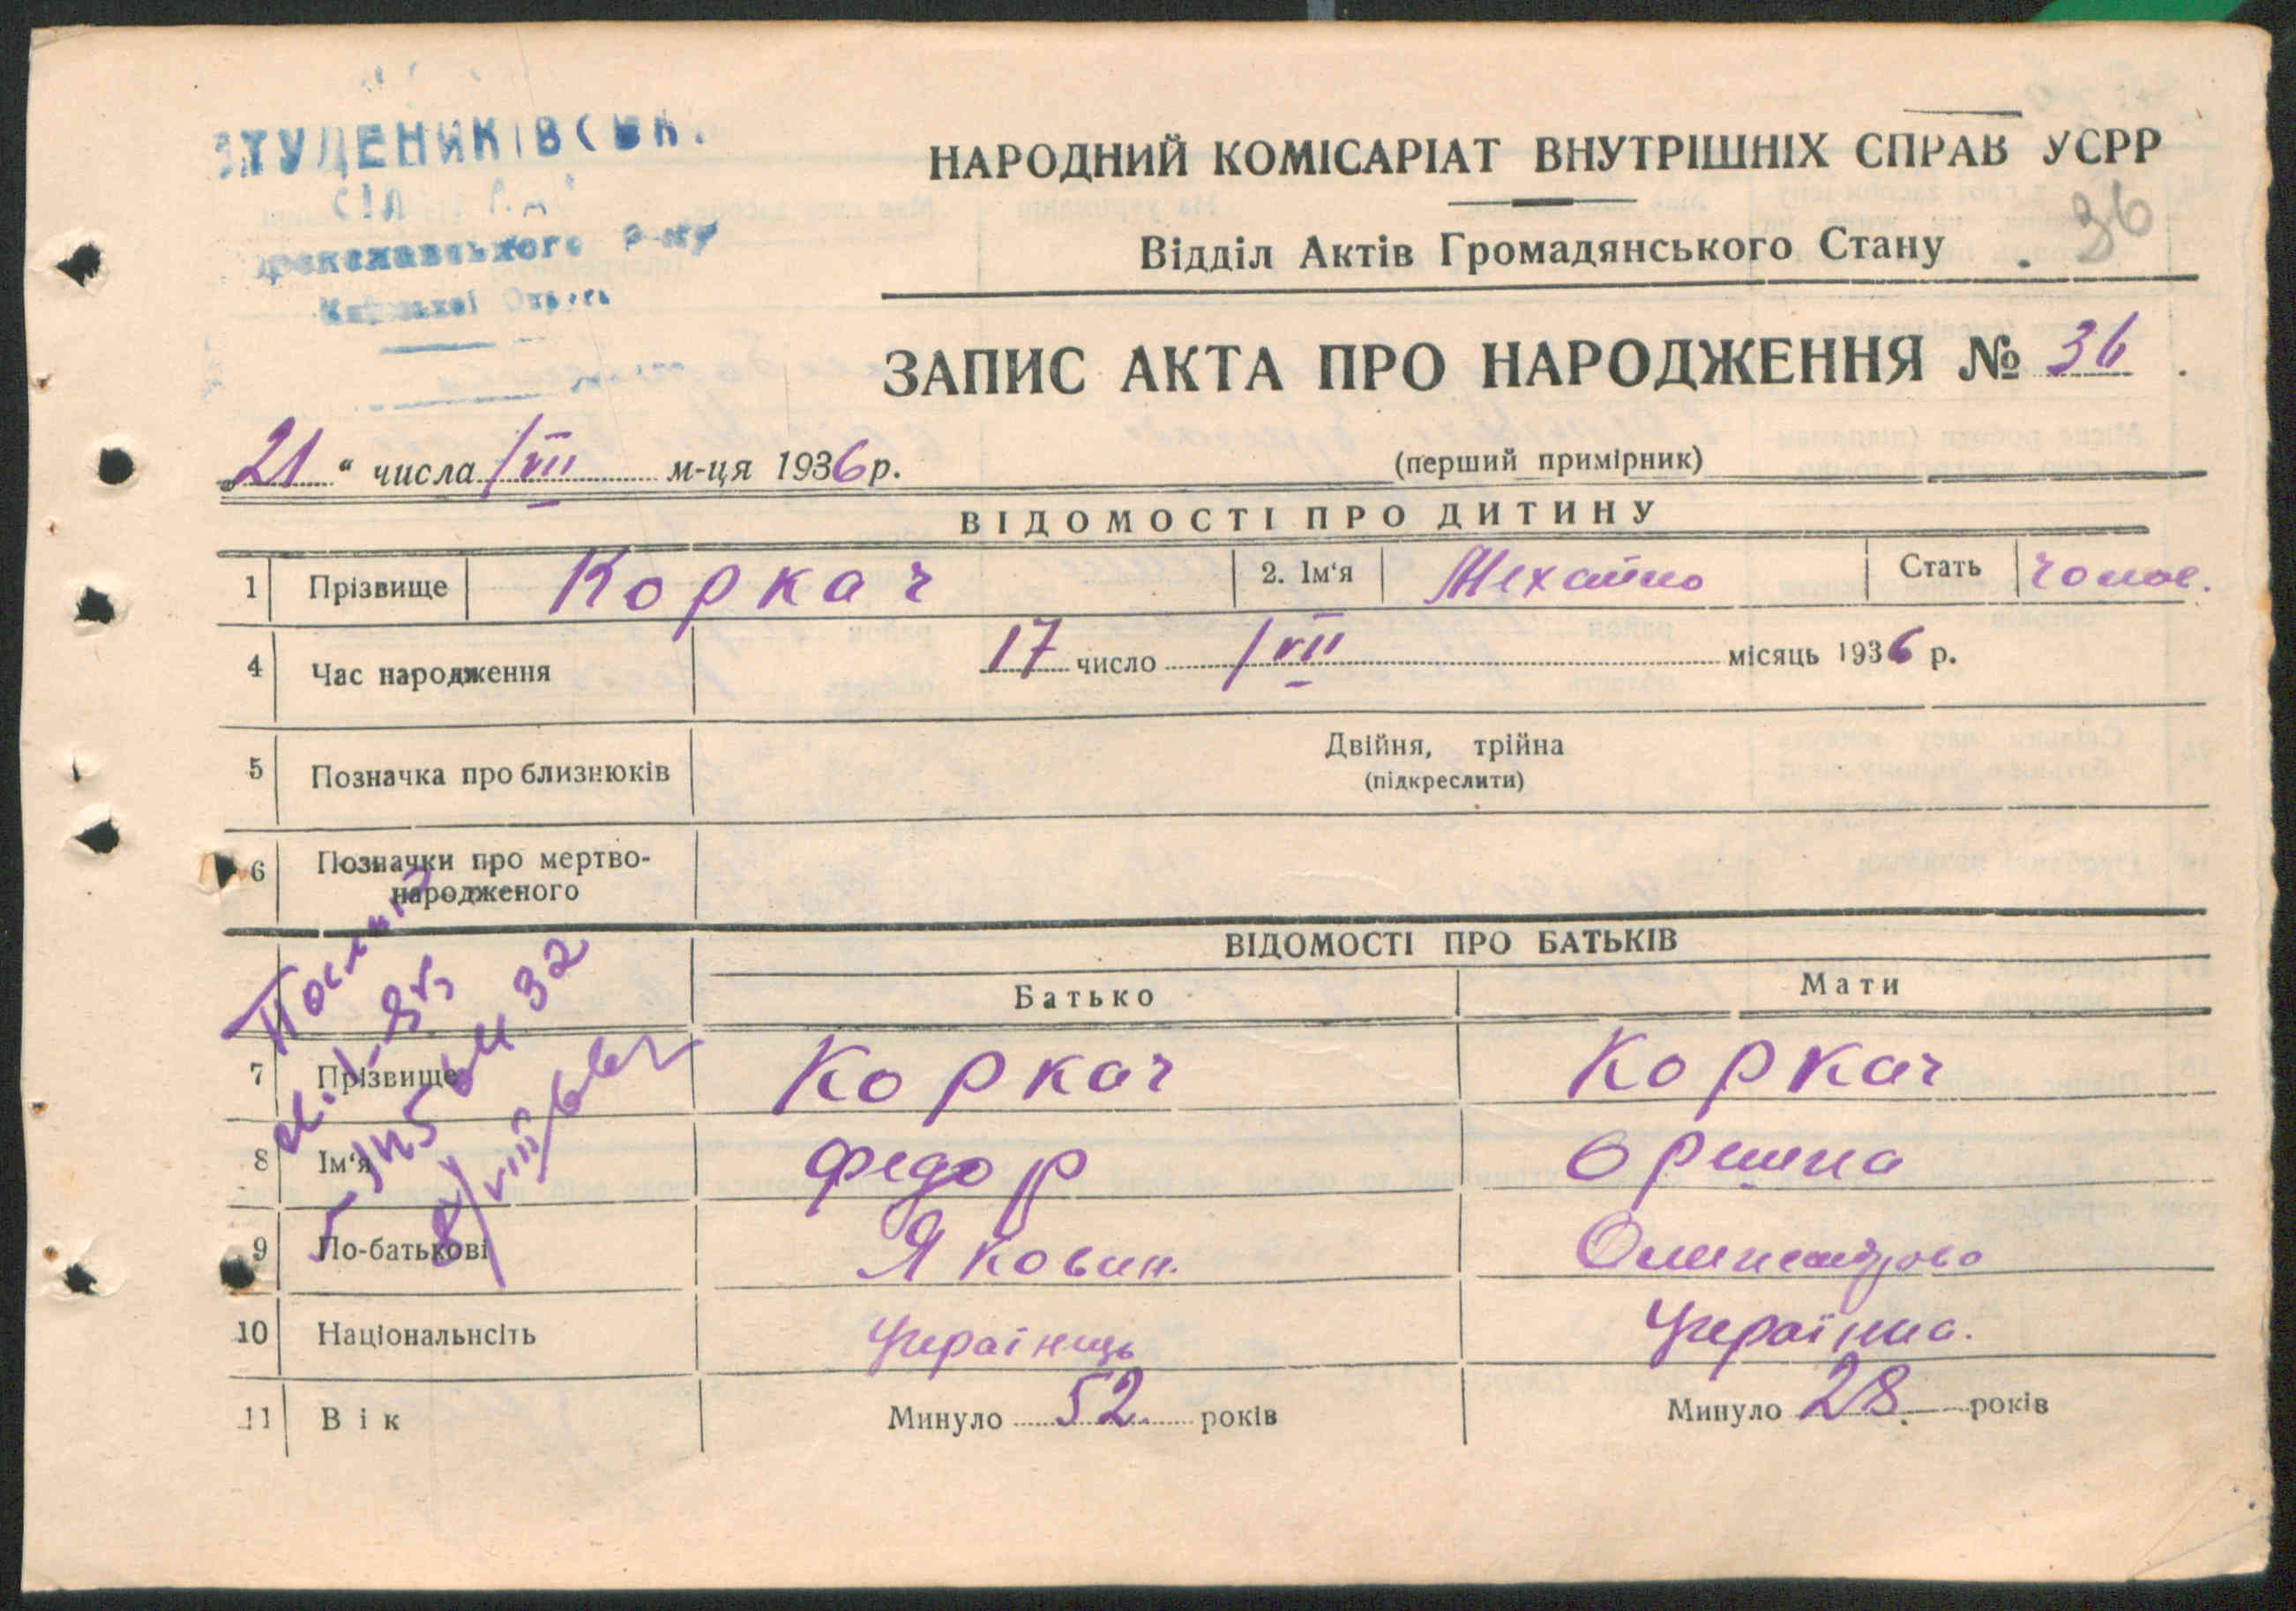 СТУДЕНИКІВСЬК.
Київської
НАРОДНИЙ КОМІСАРІАТ ВНУТРІШНІХ СПРАВ УСРР
36
Відділ Актів Громадянського Стану
ЗАПИС АКТА ПРО НАРОДЖЕННЯ № 36.
„21“ числа /VII м-ця 1936 р.
(перший примірник)
ВІДОМОСТІ ПРО ДИТИНУ
1 Прізвище Коркач 2. Ім‘я Михайло Стать чолов.
4 Час народження 17 число /VII місяць 1936 р.
5 Позначка про близнюків Двійня, трійна
(підкреслити)
6 Позначки про мертво-
народженого
ВІДОМОСТІ ПРО БАТЬКІВ
Батько Мати
7 Прізвище Коркач Коркач
8 Ім‘я Федор Оришка
9 По-батькові Яковин. Олександрова
10 Національнсіть Українець Українка.
11 Вік Минуло 52 років Минуло 28 років